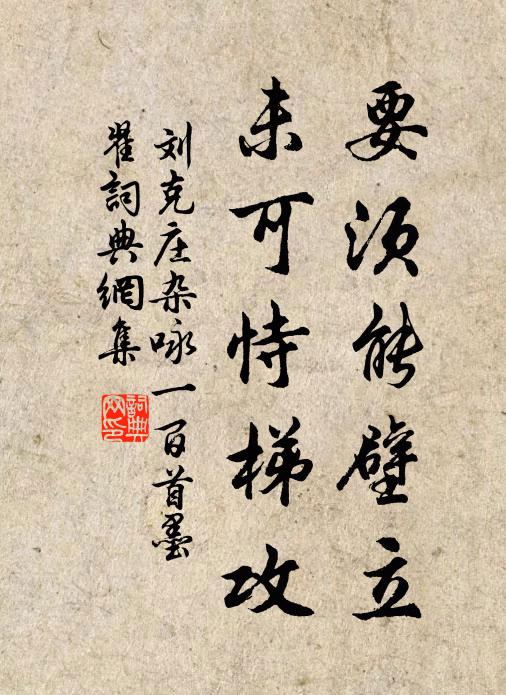 要须能壁立
未可恃梯攻
刘克庄杂咏一百首墨
翟詞典網集
詞典
网印